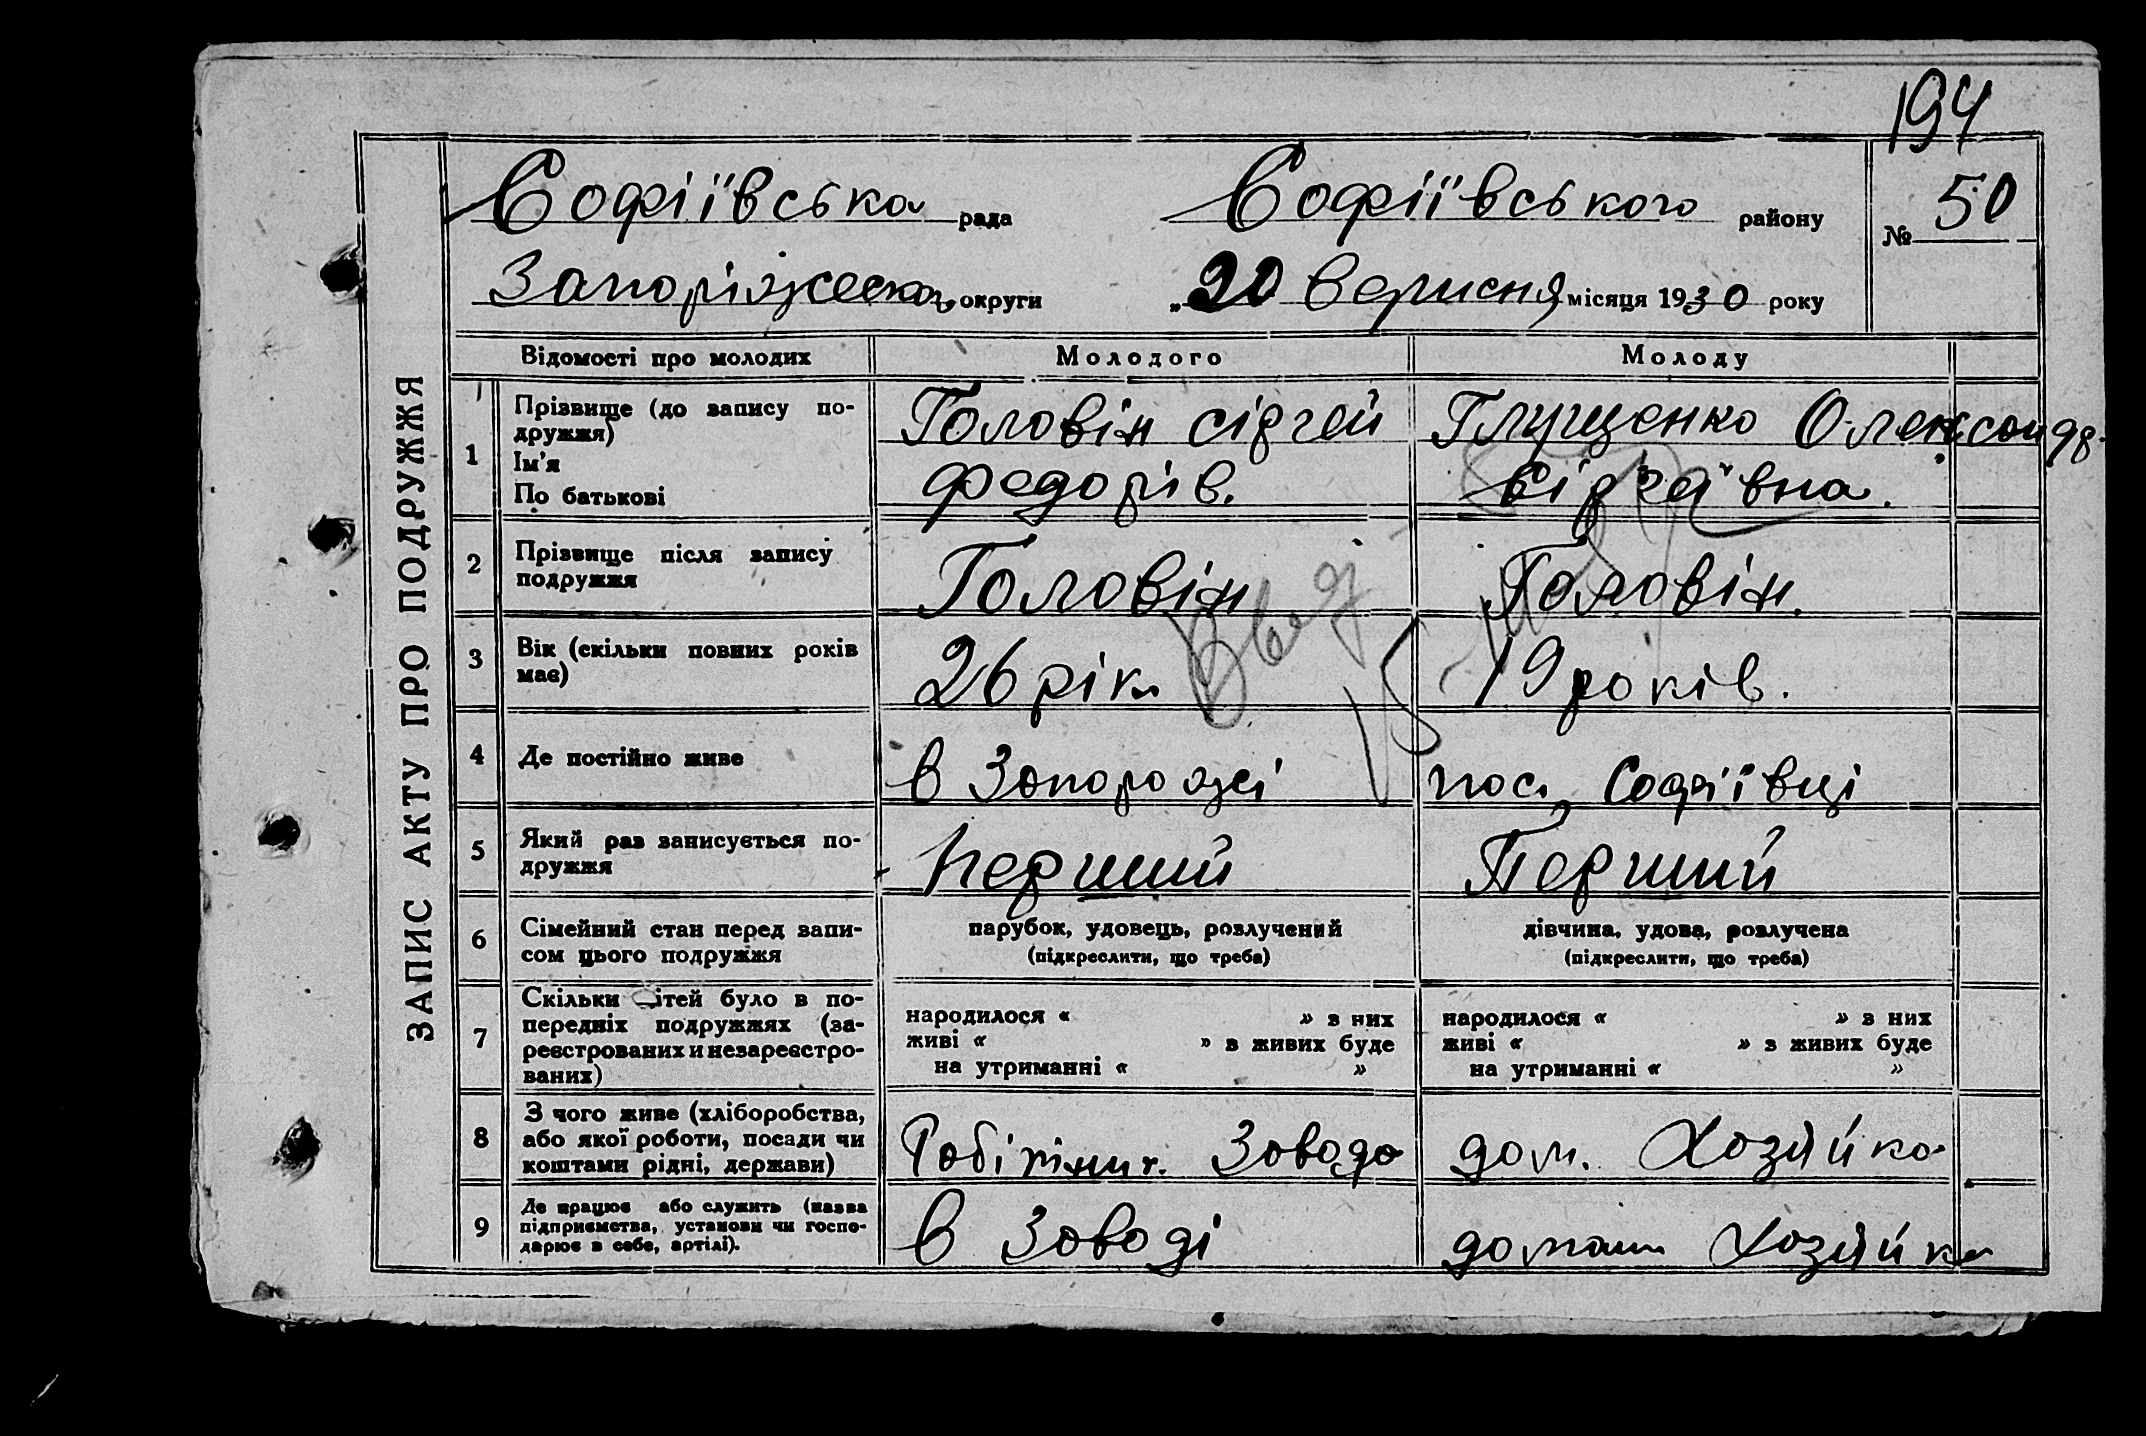 194
Софіївська рада Софіївського району № 50
Запоріжська округи „20 Вересня місяця 1930 року
ЗАПИС АКТУ ПРО ПОДРУЖЖЯ
Відомості про молодих Молодого Молоду
1 Прізвище (до запису по-
дружжя)
Ім'я
По батькові
Головін Сіргей
Федорів.
Глущенко Олександр.
Сіргаївна.
2 Прізвище після запису
подружжя
Головін
Головін.
3 Вік (скільки повних років
має)
26 рік
19 років.
4 Де постійно живе
в Запорожжі
пос. Софіївці
5 Який раз записується по-
дружжя
Перший
Перший
6 Сімейний стан перед запи-
сом цього подружжя
парубок, удовець, розлучений
(підкреслити, що треба)
дівчина, удова, розлучена
(підкреслити, що треба)
7 Скільки дітей було в по-
передніх подружжях (за-
реєстрованих и незареєстро-
ваних)
народилося « » з них
живі « » в живих буде
на утриманні « »
народилося « » з них
живі « » з живих буде
на утриманні « »
8 З чого живе (хліборобства,
або якої роботи, посади чи
коштами рідні, держави)
Робітнич. Завода
дом. Хозяйка
9 Де працює або служить (назва
підприємства, установи чи госпо-
дарює в себе, артілі).
в Заводі
домаш Хозяйка